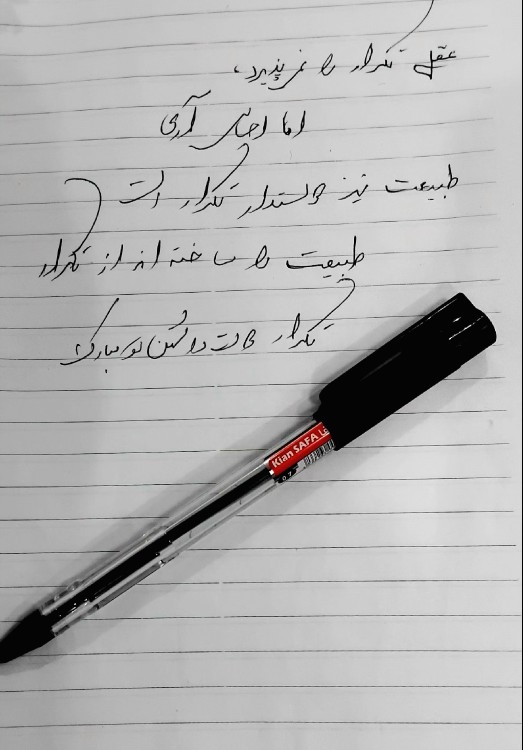 عقل تکرار را نمی‌پذیرد،
اما احساس آری
طبیعت نیز دوستدار تکرار است
طبیعت را ساخته‌اند از تکرار
تکرار دوست داشتن تو مبارک
Kian SAFA
0.7